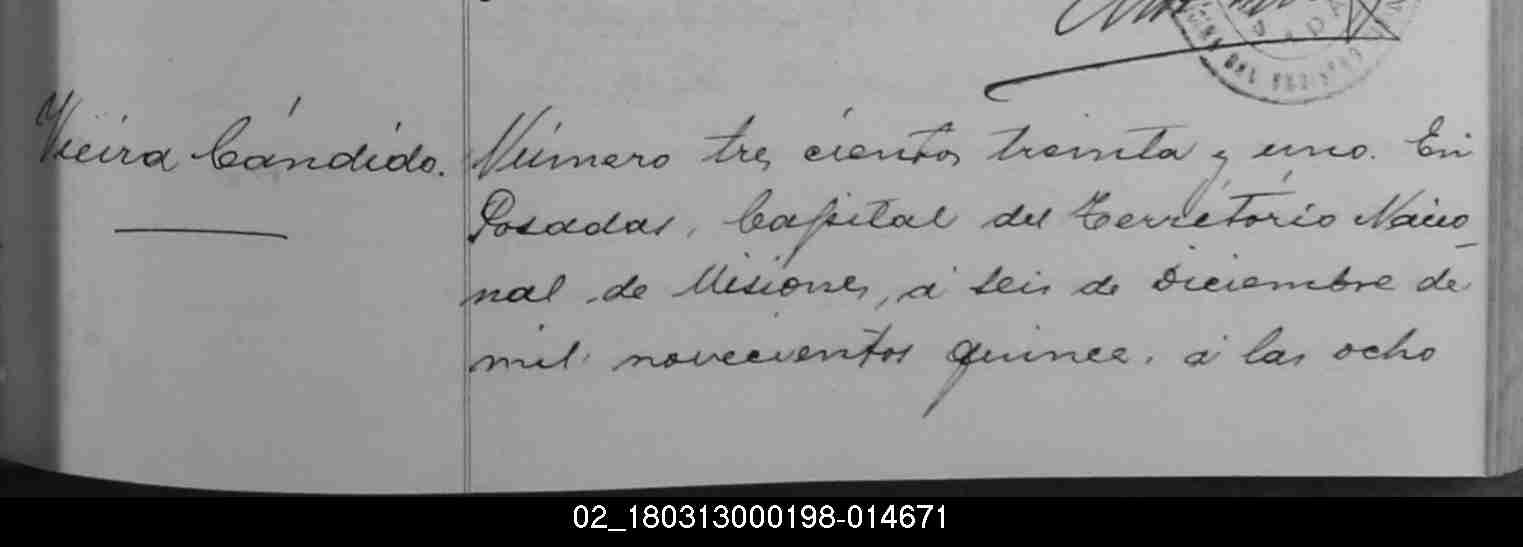 Vieira Cándido.
Número tres cientos treinta y uno. En
Posadas, Capital del Território Nacio
nal de Misiones, á seis de Diciembre de
mil novecientos quince, á las ocho
02_180313000198-014671